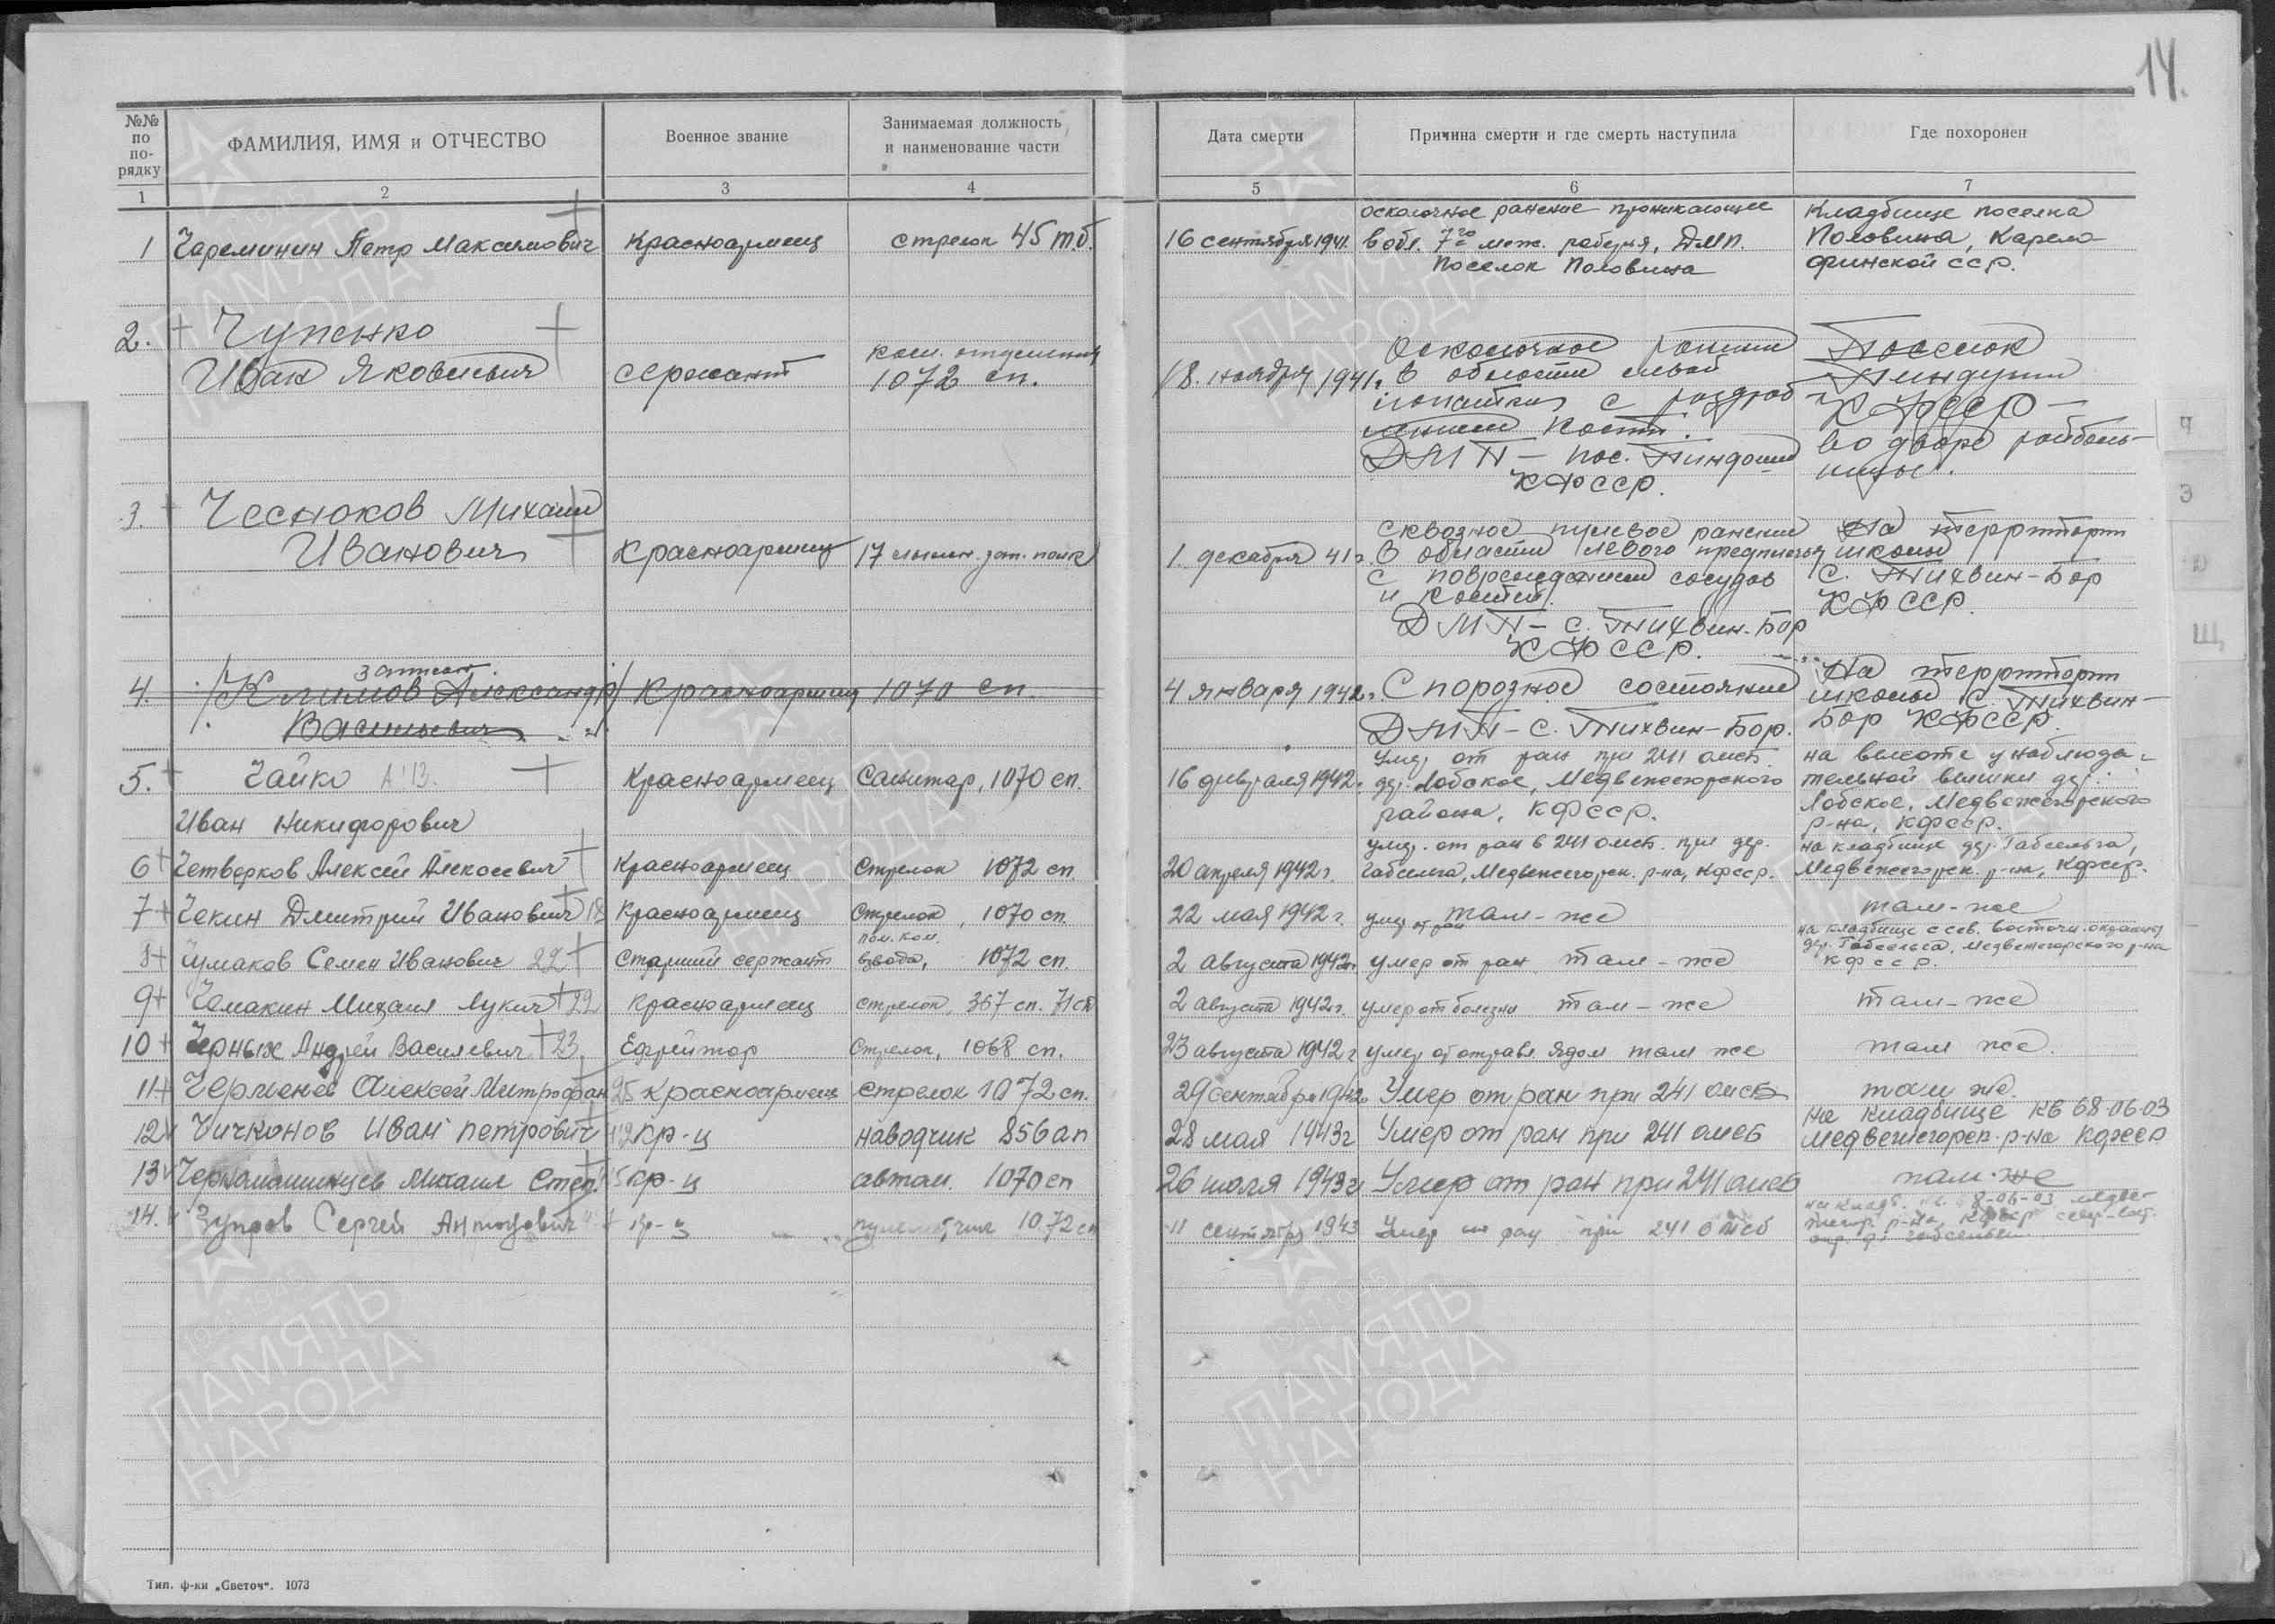 14.
№№ по по-рядку
ФАМИЛИЯ, ИМЯ и ОТЧЕСТВО
Военное звание
Занимаемая должность и наименование части
Дата смерти
Причина смерти и где смерть наступила
Где похоронен
1 2 3 4 5 6 7
1 Чареминин Петр Максимович Красноармеец стрелок 45 т.б. 16 сентября 1941. осколочное ранение проникающее Кладбище поселка
в обл. 7го меж. ребер, ДМП. Половина, Карело-
Поселок Половина финской сср.
2. Чупенко
Иван Яковлевич сержант ком. отделения 18. ноября 1941г. Осколочное ранение Поселок
1072 сп. в области левой Пиндуши
лопатки с раздроб- КФССР –
лением кости. во дворе райболь-
ДМП – пос. Пиндуши ницы.
КФССР.
3. Чесноков Михаил
Иванович Красноармеец 17 зап. полк 1. декабря 41г. сквозное пулевое ранение На территории
в области левого предплечья школы
с повреждением сосудов с. Тихвин-Бор
и костей. КФССР.
ДМП – с. Тихвин-Бор
КФССР.
записан.
4. Климов Александр Красноармеец 1070 сп. 4 января 1942г. Спорозное состояние На территории
Васильевич школы с. Тихвин-
ДМП – с. Тихвин-Бор. Бор КФССР.
5. Чайко Красноармеец Санитар, 1070 сп. 16 февраля 1942г. Умер от ран при 241 омсб. на высоте у наблюда-
дер. Лобское, Медвежегорского тельной вышки дер.
Иван Никифорович района, КФССР. Лобское, Медвежегорского
р-на, КФССР.
6 Четверков Алексей Алексеевич Красноармеец Стрелок 1072 сп. 20 апреля 1942г. умер. от ран в 241 омсб. при дер. на кладбище дер. Габсельга,
Габсельга, Медвежегорск. р-на, Кфсср. Медвежегорск. р-на, Кфсср.
7 Чекин Дмитрий Иванович 18 Красноармеец Стрелок, 1070 сп. 22 мая 1942г. умер от ран там-же там-же
8 Чумаков Семен Иванович 22 Старший сержант пом. ком. взвода, 1072 сп. 2 августа 1942г. умер от ран там-же на кладбище с сев. восточн. окраины
дер. Габсельга, Медвежегорского р-на
КФССР.
9 Чемакин Михаил Лукич 22 Красноармеец стрелок, 367 сп. 71 сд 2 августа 1942г. умер от болезни там-же там-же
10 Черных Андрей Василевич 23 Ефрейтор Стрелок, 1068 сп. 23 августа 1942г умер от отравл. ядом там же там же.
11 Черменев Алексей Митрофан 25 Красноармеец стрелок 1072 сп. 29 сентября 1942г. Умер от ран при 241 омсб там же.
12 Чичконов Иван Петрович кр-ц наводчик 856 ап 28 мая 1943г Умер от ран при 241 омсб на кладбище кв 68-06-03
Медвежегорск. р-на Кфсср
13 Михаил Степ. кр-ц автом. 1070 сп 26 июля 1943г Умер от ран при 241 омсб там-же
14. Зупров Сергей Антонович кр-ц пулеметчик 1072 сп 11 сентября 1943 Умер от ран при 241 омсб на кладб. 8-06-03 Медве-
р-на, Кфсср
Тип. ф-ки „Светоч“. 1073
Ч
Э
Щ
ПАМЯТЬ НАРОДА
1941-1945